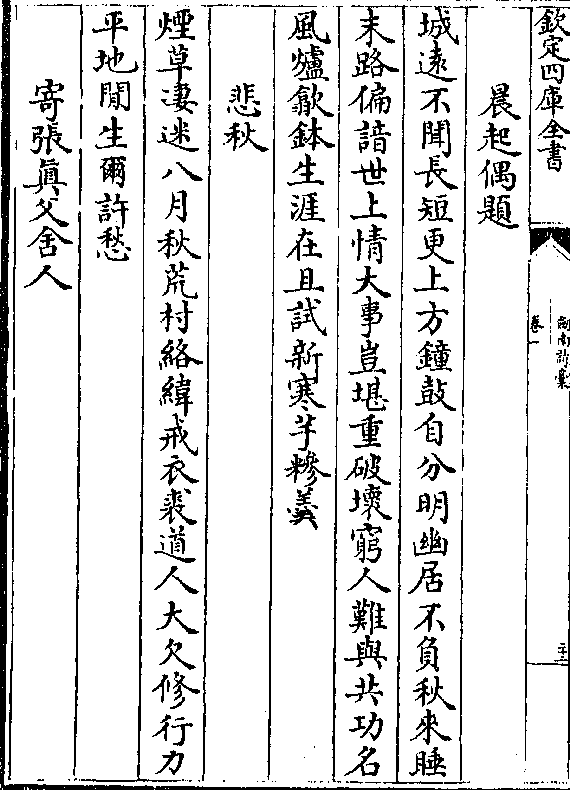 欽定四庫全書
劍南詩稾
卷一
二十三
晨起偶題
城遠不聞長短更上方鐘鼓自分明幽居不負秋來睡
末路偏諳世上情大事豈堪重破壞窮人難與共功名
風爐歙鉢生涯在且試新寒芋糝羹
悲秋
煙草凄迷八月秋荒村絡緯戒衣裘道人大欠修行力
平地閒生爾許愁
寄張眞父舍人